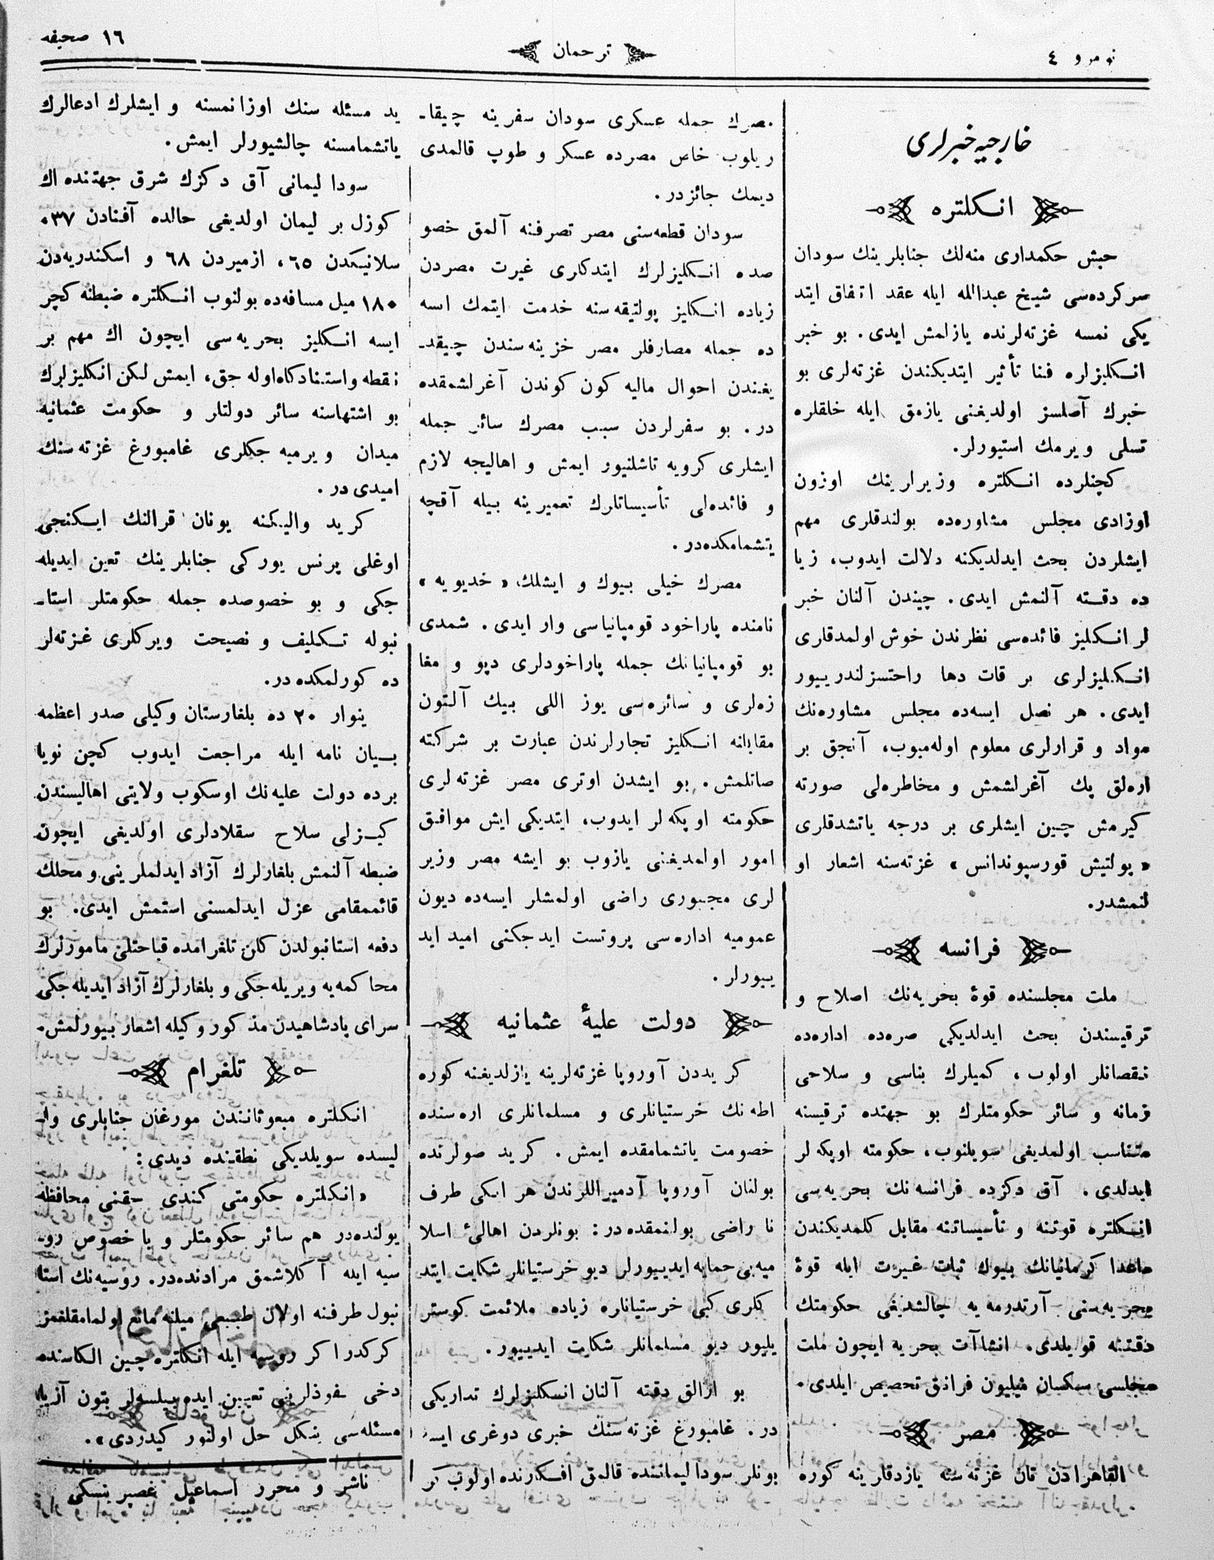 نومرو ٤
ترجمان
١٦ صحیفه
خارجیه خبرلری
انكلتره
حبش حكمداری منه‌لك جنابلرینك سودان
سركرده‌سی شیخ عبدالله ایله عقد اتفاق ایتد
یكی نمسه غزته‌لرنده یازلمش ایدی. بو خبر
انكلیزلره فنا تأثیر ایتدیكندن غزته‌لری بو
خبرك آصلسز اولدیغنی یازمق ایله خلقلره
تسلی ویرمك استیورلر.
كچنلرده انكلتره وزیرلرینك اوزون
اوزادی مجلس مشاوره‌ده بولندقلری مهم
ایشلردن بحث ایدلدیكنه دلالت ایدوب، زیا
ده دقته آلنمش ایدی. چیندن آلنان خبر
لر انكلیز فائده‌سی نظرندن خوش اولمدقلری
انكلیزلری بر قات دها راحتسزلندرییور
ایدی. هر نصل ایسه‌ده مجلس مشاوره‌نك
مواد و قرارلری معلوم اوله‌میوب، آنجق بر
اره‌لق پك آغرلشمش و مخاطره‌لی صورته
كیرمش چین ایشلری بر درجه یاتشدقلری
« پولتیش قورسپوندانس » غزته‌سنه اشعار او
لنمشدر.
فرانسه
ملت مجلسنده قوهٔ بحریه‌نك اصلاح و
ترقیسندن بحث ایدلدیكی صره‌ده اداره‌ده
نقصانلر اولوب، كمیلرك بناسی و سلاحی
زمانه و سائر حكومتلرك بو جهتده ترقیسنه
متناسب اولمدیغی سویلنوب، حكومته اوپكه لر
ایدلدی. آق دكزده فرانسه نك بحریه‌سی
انكلتره قوتنه و تأسیساتنه مقابل كلمدیكندن
ماعدا كرمانیانك بیوك ثبات غیرت ایله قوهٔ
بحریه‌سنی آرتدرمه‌یه چالشدیغی حكومتك
دقتنه قویلدی. انشاآت بحریه ایچون ملت
مجلسی سیكسان میلیون فرانق تحصیص ایلدی.
مصر
القاهرادن تان غزته‌سنه یازدقلرینه كوره
مصرك حمله عسكری سودان سفرینه چیقا-
ریلوب خاص مصرده عسكر و طوپ قالمدی
دیمك جائزدر.
سودان قطعه‌سنی مصر تصرفنه آلمق خصو
صده انكلیزلرك ایتدكلری غیرت مصردن
زیاده انكلیز پولتیقه‌سنه خدمت ایتمك ایسه
ده جمله مصارفلر مصر خزینه‌سندن چیقد-
یغندن احوال مالیه كون كوندن آغرلشمقده
در. بو سفرلردن سبب مصرك سائر جمله
ایشلری كرویه تاشلنیور ایمش و اهالیجه لازم
و فائده‌لی تأسیساتلرك تعمیرینه بیله آقچه
یتشمامكده‌در.
مصرك خیلی بیوك و ایشلك « خدیویه »
نامنده پاراخود قومپانیاسی وار ایدی. شمدی
بو قومپانیانك جمله پاراخودلری دپو و مغا
زه‌لری و سائره‌سی یوز اللی بیك آلتون
مقابلنه انكلیز تجارلرندن عبارت بر شركته
صاتلمش. بو ایشدن اوتری مصر غزته لری
حكومته اوپكه لر ایدوب، ایتدیكی ایش موافق
امور اولمدیغنی یازوب بو ایشه مصر وزیر
لری مجبوری راضی اولمشلر ایسه‌ده دیون
عمومیه اداره‌سی پروتست ایدجكنی امید اید
ییورلر.
دولت علیهٔ عثمانیه
كریددن آوروپا غزته‌لرینه یازلدیغنه كوره
اطه نك خرستیانلری و مسلمانلری اره‌سنده
خصومت یاتشمامقده ایمش. كرید صولرنده
بولنان آوروپا آدمیراللرندن هر ایكی طرف
نا راضی بولنمقده‌در: بونلردن اهالیٔ اسلا
میه‌یی حمایه ایدییورلر دیو خرستیانلر شكایت ایتد
كلری كبی خرستیانلره زیاده ملائمت كوستر
یلیور دیو مسلمانلر شكایت ایدییور.
بو ارالق دقته آلنان انكلیزلرك تداریكی
در. غامبورغ غزته سنك خبری دوغری ایسه
بونلر سودا لیماننده قالمق افكارنده اولوب كر
ید مسئله سنك اوزانمسنه و ایشلرك ادعالرك
یاتشمامسنه چالشیورلر ایمش.
سودا لیمانی آق دكزك شرق جهتنده اك
كوزل بر لیمان اولدیغی حالده آفنادن ٣٧٠
سلانیكدن ٦٥، ازمیردن ٦٨ و اسكندریه‌دن
١٨٠ میل مسافه‌ده بولنوب انكلتره ضبطنه كچر
ایسه انكلیز بحریه سی ایچون اك مهم بر
نقطه و استنادكاه اوله جق، ایمش لكن انكلیزلرك
بو اشتهاسنه سائر دولتلر و حكومت عثمانیه
میدان ویرمیه جكلری غامبورغ غزته سنك
امیدی در.
كرید والیلكنه یونان قرالنك ایكنجی
اوغلی پرنس یورکی جنابلرینك تعین ایدیله
جكی و بو خصوصده جمله حكومتلر استا-
نبوله تكلیف و نصیحت ویركلری غزته‌لر
ده كورلمكده در.
ینوار ٢٠ ده بلغارستان وكیلی صدر اعظمه
بیان نامه ایله مراجعت ایدوب كچن نویا
برده دولت علیه‌نك اوسكوب ولایتی اهالیسندن
كیزلی سلاح سقلادلری اولدیغی ایچون
ضبطه آلنمش بلغارلرك آزاد ایدلملرینی و محلك
قائممقامی عزل ایدلمسنی استمش ایدی. بو
دفعه استانبولدن كلن تلغرامده قباحتلی مامورلرك
محاكمه‌یه ویریله‌جكی و بلغارلرك آزاد ایدیله‌جكی
سرای پادشاهیدن مذكور وكیله اشعار بیورلمش.
تلغرام
انكلتره مبعوثانندن مورغان جنابلری وا-
لیسده سویلدیكی نطقینده دیدی:
« انكلتره حكومتی كندی حقنی محافظه
یولنده‌در هم سائر حكومتلر و با خصوص رو-
سیه ایله آكلاشمق مرادنده‌در. روسیه‌نك استا
نبول طرفنه اولان طبیعی میلنه مانع اولمامقلغمز
كركدر اكر روسیه ایله انكلتره چین الكاسنده
دخی نفوذلرینی تعیین ایده‌بیلسه‌لر بتون آزیا
مسئله‌سی بنكل حل اولنور كیدردی ».
ناشر و محرر اسماعیل غصپرینسكی